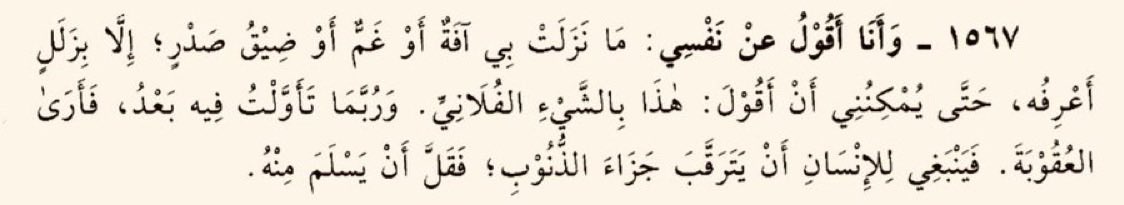 ١٥٦٧ - وَأَنَا أَقُوْلُ عنْ نَفْسِي: مَا نَزَلَتْ بِي آفَةٌ أَوْ غَمٌّ أَوْ ضِيْقُ صَدْرٍ؛ إِلَّا بِزَلَلٍ
أَعْرِفُه، حَتَّى يُمْكِنُنِي أَنْ أَقُوْلَ: هٰذَا بِالشَّيْءِ الفُلَانِيِّ. وَرُبَّمَا تَأَوَّلْتُ فِيه بَعْدُ، فَأَرَىٰ
العُقُوْبَةَ. فَيَنْبَغِي لِلإِنْسَانِ أَنْ يَتَرَقَّبَ جَزَاءَ الذُّنُوْبِ؛ فَقَلَّ أَنْ يَسْلَمَ مِنْهُ.